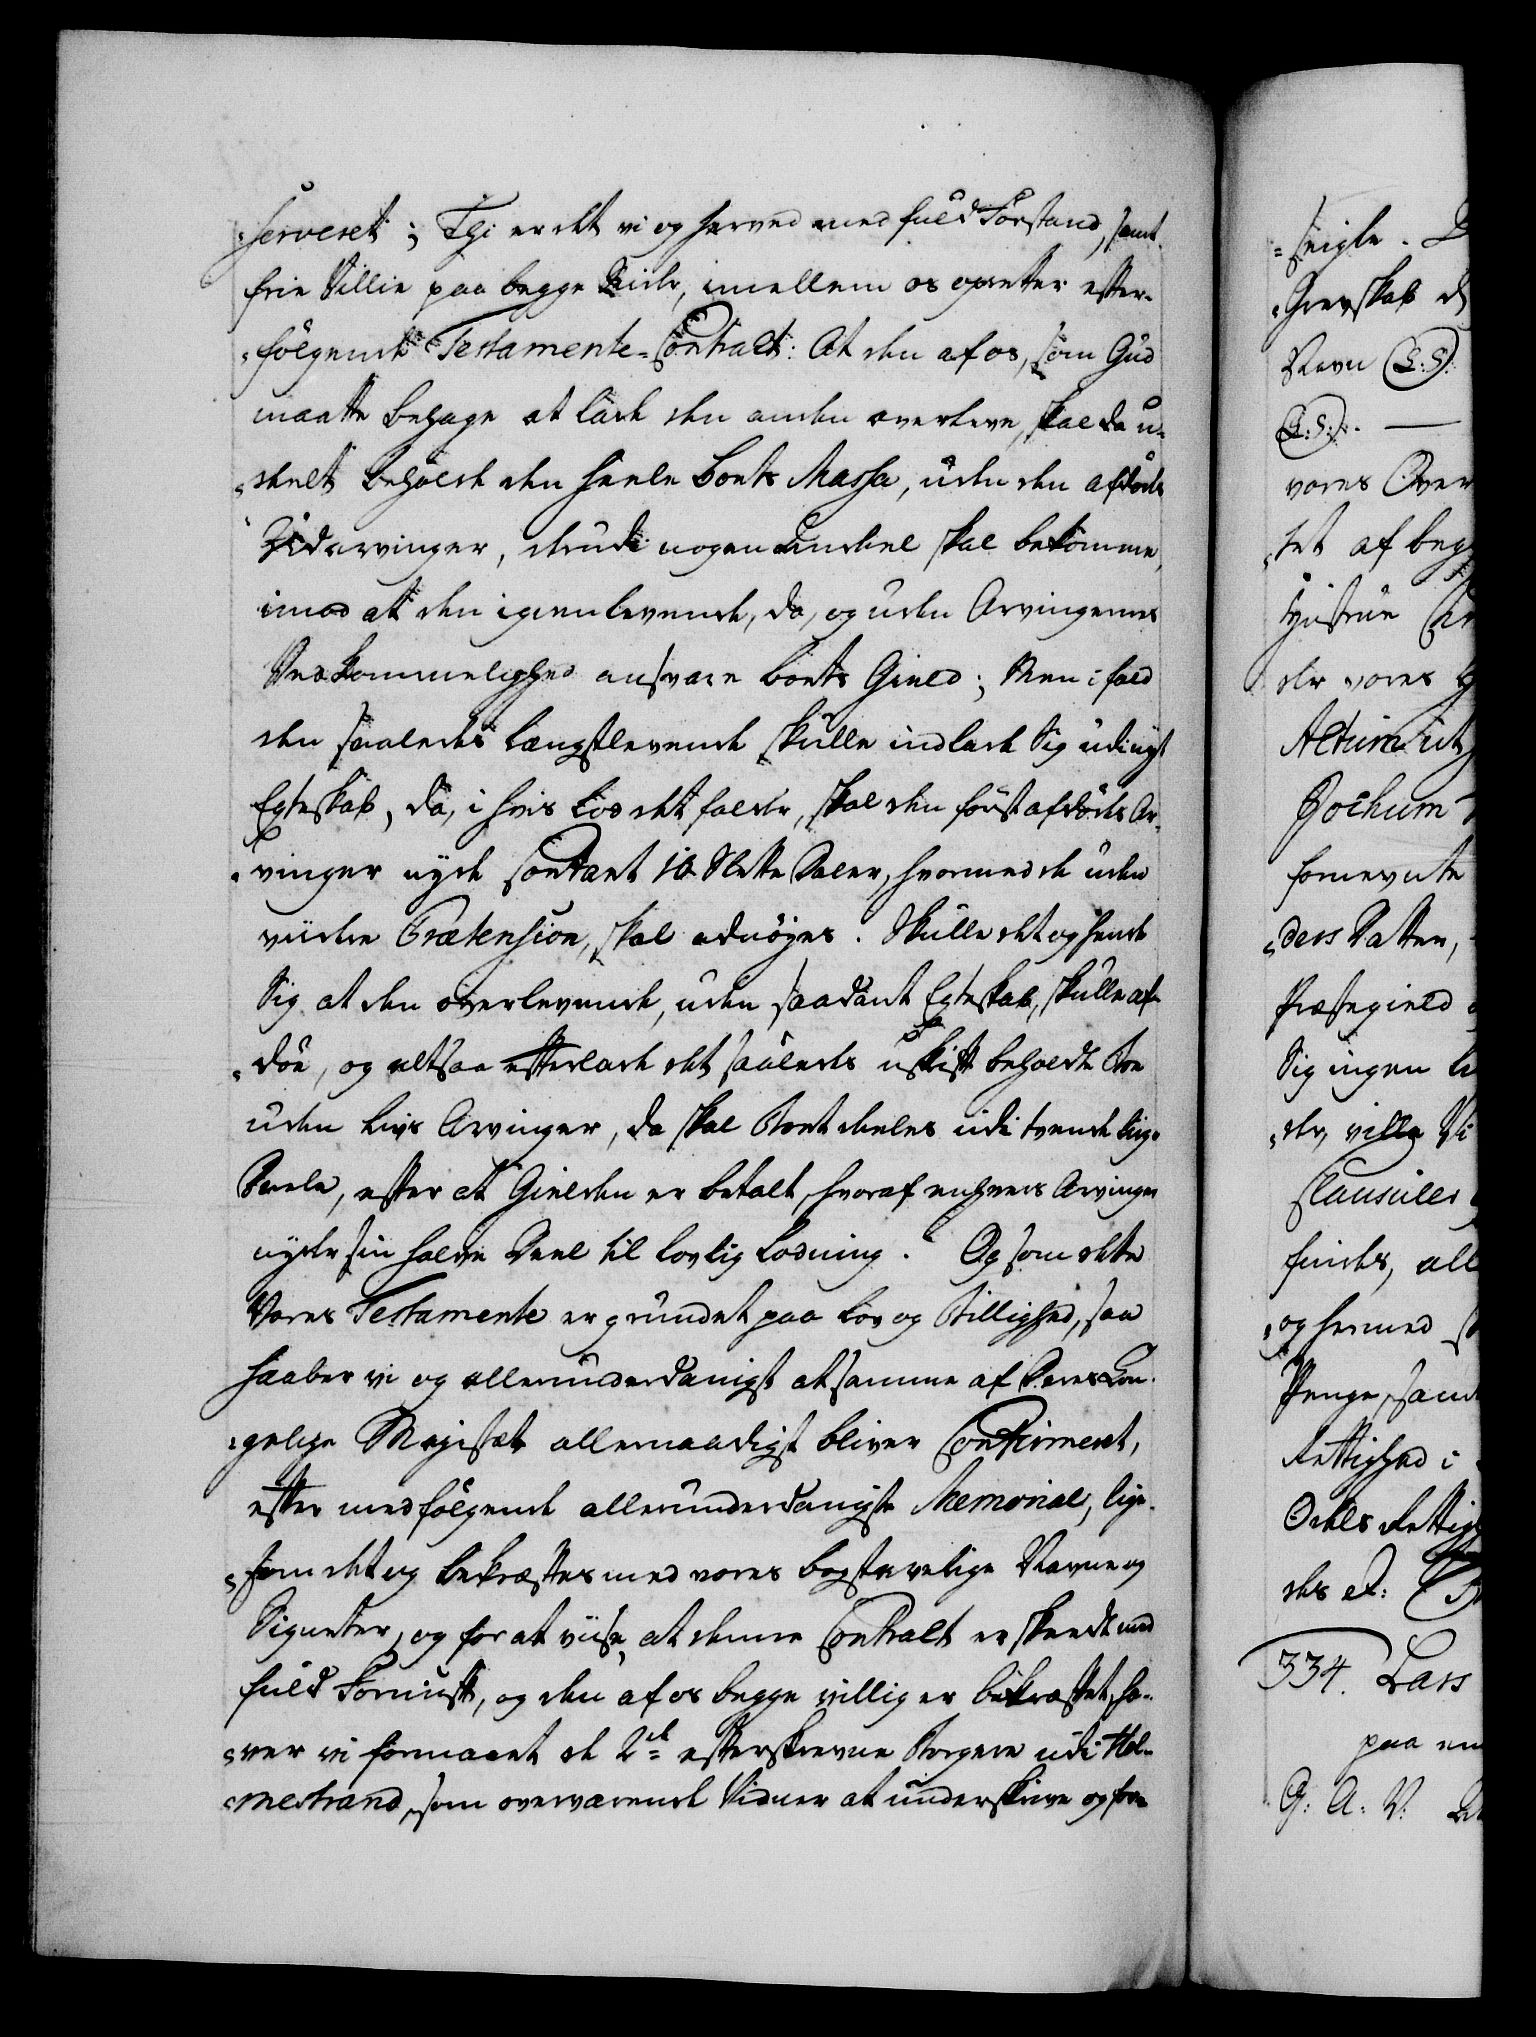 serveret; Thi er det vi og herved med fuld Forstand, samt
frie Villie paa begge Sider, imellem os opretter efter-
følgende Testamente-Contract: At den af os, som Gud
maatte behage at lade den anden overleve, skal da u-
deelt beholde den heele Boets Massa, uden den afdødes
Udarvinger, derudi nogen Andeel skal bekomme,
imod at den igienlevende, da, og uden Arvingernes
Vedkommelighed ansvare Boets Gield; Men i fald
den saaledes længstlevende skulle indlade Sig udi nyt
Egteskab, da, i hvis Lod det falder, skal den først afdødes Ar-
vinger nyde Contant 10 Slette Daler, hvormed de uden
viidere Prætension, skal adnøyes. Skulle det og hende
Sig at den overlevende, uden saadant Egteskab, skulle af-
døe, og altsaa efterlade det saaledes uskift beholdte Boe
uden Livs Arvinger, da skal Boet deeles udi tvende liige
Deele, efter at Gielden er betalt, hvoraf enhvers Arvinger
nyder sin halve Deel til lovlig Lodning. Og som dette
Vores Testamente er grundet paa Lov og Billighed, saa
haaber vi og allerunderdanigst at samme af Deres Kon-
gelige Majestæt allernaadigst bliver Confirmeret,
efter medfølgende allerunderdanigste Memorial, lige-
som det og bekræftes med vores bogstavelige Navne og
Signeter, og for at viise, at denne Contract er skeedt med
fuld Fornuft, og den af os begge villig er bekræftet, ha-
ver vi formaaet de 2de efterskrevne Borgere udi Hol-
mestrand, som overværende Vidner at underskrive og for-
seigle.
Grevskab
Navn (L:S:)
(L:S:).
vores Over
tet af beg
Hustrue
der vores
Actum ut
Jochum
fornevnte
ders Datter,
Præstegield
Sig ingen
der, ville Vi
Clausuler
findes, all
og hermed
Penge, samt
Rettighed i
Odels Rettig
des
334. Lars
paa en
G: A: V: